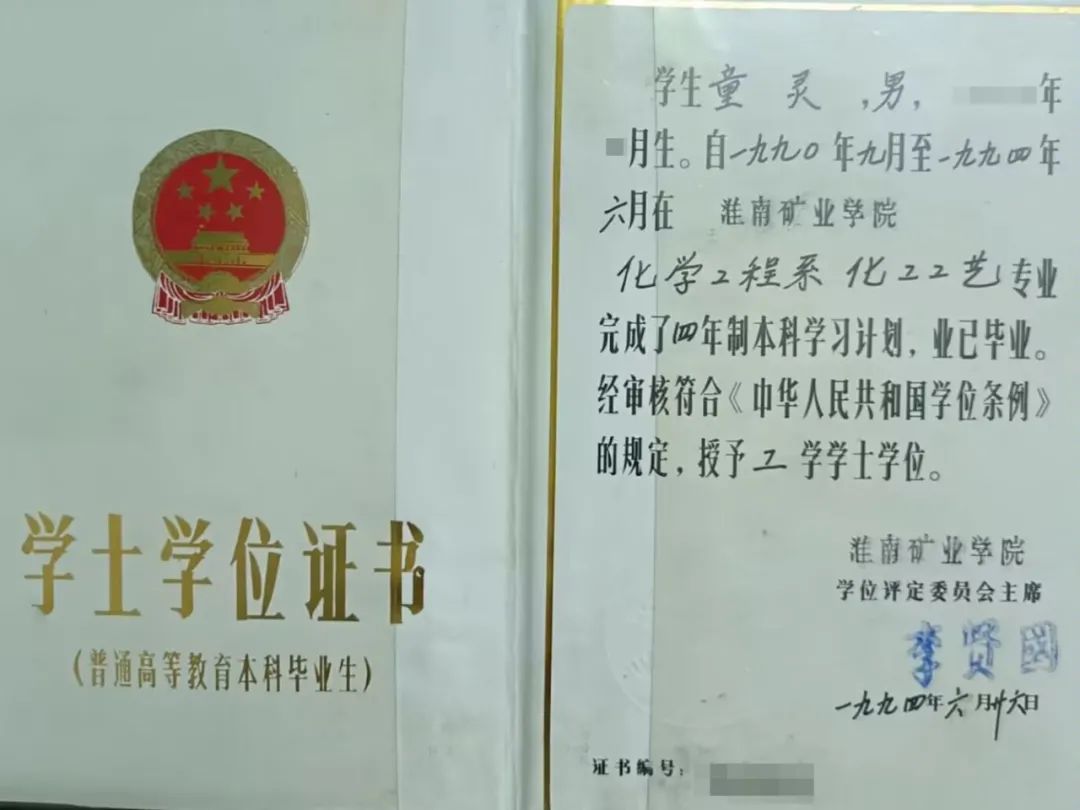 学士学位证书
（普通高等教育本科毕业生）
学生童 灵，男， 年
月生。自一九九〇年九月至一九九四年
六月在 淮南矿业学院
化学工程系 化工工艺专业
完成了四年制本科学习计划，业已毕业。
经审核符合《中华人民共和国学位条例》
的规定，授予工学学士学位。
淮南矿业学院
学位评定委员会主席
李贤国
一九九四年六月廿六日
证书编号：